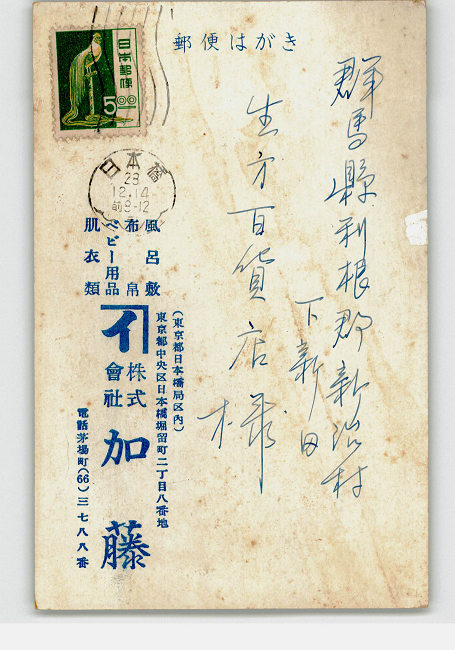 郵便はがき
日本郵便
5.00
日本橋
28
12.14
前8-12
群馬縣利根郡新治村
下新田
生方百貨店様
風呂敷
布帛
ベビー用品
肌衣類
(東京都日本橋局区内)
東京都中央区日本橋堀留町二丁目八番地
イ
株式會社
加藤
電話茅場町(66)三七八八番